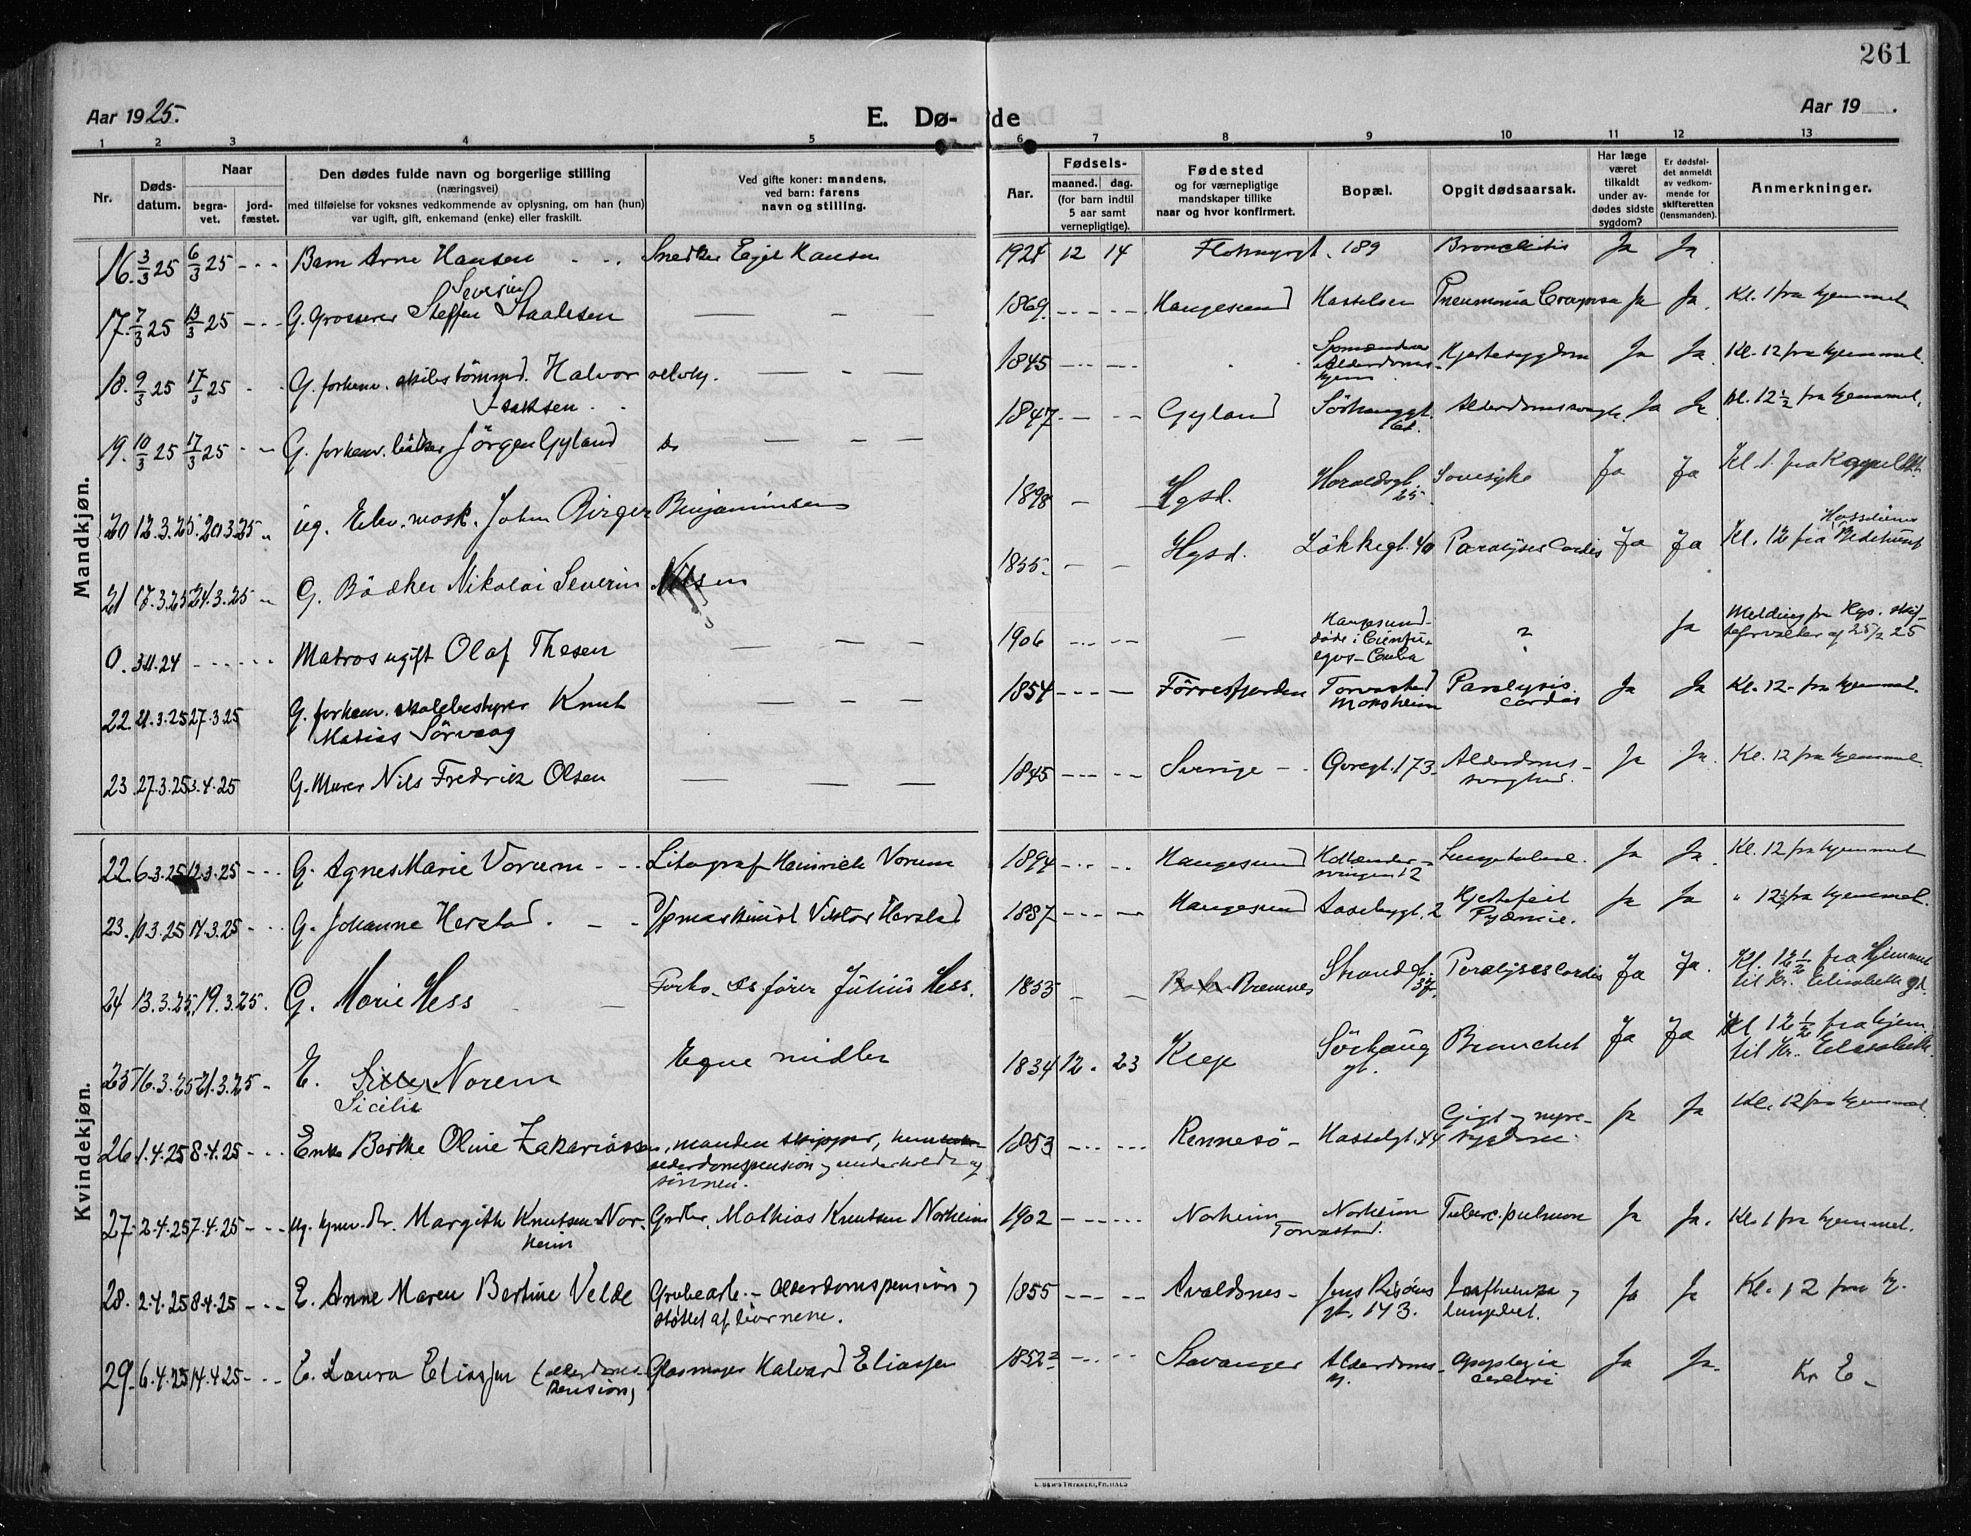 261
Aar 1925.
E. Dø-
de
Aar 19
1 2 3 4 5 6 7 8 9 10 11 12 13
Nr.
Døds-
datum.
Naar
begra-
vet.
jord-
fæstet.
Den dødes fulde navn og borgerlige stilling
(næringsvei)
med tilføielse for voksnes vedkommende av oplysning, om han (hun)
var ugift, gift, enkemand (enke) eller fraskilt.
Ved gifte koner: mandens,
ved barn: farens
navn og stilling.
Aar.
Fødsels-
maaned. dag.
(for barn indtil
5 aar samt
vernepligtige).
Fødested
og for værnepligtige
mandskaper tillike
naar og hvor konfirmert.
Bopæl.
Opgit dødsaarsak.
Har læge
været
tilkaldt
under av-
dødes sidste
sygdom?
Er dødsfal-
det anmeldt
av vedkom-
mende for
skifteretten
(lensmanden).
Anmerkninger.
Mandkjøn.
16. 3/3 25 6/3 25 - - - Barn Arne Hansen Snedker Egil Hansen 1924 12 14 189 Bronchitis Ja Ja
Severin
17. 7/3 25 13/3 25 - - - G. Grosserer Steffen Staalesen — — — 1869. Haugesund Pneumonia Ja Ja. Kl. 1 fra hjemmet
18. 9/3 25 17/3 25 G. forhenv. skibstømmd. Halvor 1845 Alderdoms- hjem Hjertesygdom Ja Ja. Kl. 12 fra hjemmet.
Isaksen
19. 10/3 25 17/3 25 G. forhenv. Jörgen Gyland do — — — 1847 Gyland Alderdomssvagh. Ja Ja. Kl. 12½ fra hjemmet.
20 12.3.25. 20.3.25 ug. Elev. mask. John Birger Benjaminsen 1898 Hgsd. Haraldsgt. 25 Sovesyke Ja Ja Kl. 1. fra Kapellet
21 17.3.25 24.3.25 G. Bödker Nikolai Severin Nilsen 1855 Hgsd. Lökkegt. 40 Paralyses Cordis Ja Ja Kl. 12 fra Bedehuset
0. 3.11.24 Matros ugift Olaf Thesen — — — 1906 — Haugesund- döde i Cienfu- egos - Cuba ? Ja Melding fra Hgs. skif- teforvalter af 25/2 25
22. 21.3.25 27.3.25 G. forhenv. skolebestyrer Knut — — — 1854 Förresfjorden Torvastad Paralysis cordis Ja Ja Kl. 12 - fra hjemmet.
Matias Sörvaag
23 27.3.25 3.4.25 G. Murer Nils Fredrick Olsen — — — 1845 Sverige - Øvregt. 173 Alderdoms- svaghed. Ja Ja. Kl. 12 fra hjemmet
Kvindekjøn.
22. 6.3.25 12.3.25 - - - G. Agnes Marie Vorum - - Litograf Heinrich Vorum 1894 Haugesund Hollender- svingen 12 Ja Ja. Kl. 12 fra hjemmet
23. 10.3.25 17.3.25 G. Johanne Herstad. Viktor Herstad 1887 Haugesund Aasebygt. 2 Hjertefeil Pyæmie. Ja Ja " 12½ fra hjemmet.
24 13.3.25. 19.3.25. G. Marie Hess Julius Hess. 1853 Bremnes Strandgt. 37. Paralyses Cordis Ja Ja. Kl. 12½ fra Hjemmet
til Kr. Elisabeth gt.
25 16.3.25 21.3.25 - E. Norem Egne midler 1834 12. 23 Klep Sörhaug gt. Bronchit Ja Ja Kl 12½ fra hjem
Sicilie til Kr. Elisabeth
26 1.4.25 8.4.25 - - - Enke Berthe Oline Zakariassen, manden skipper, 1853 Rennesö - Hasselgt. 44 Gigt og nyre- sygdom Ja Ja Kl. 12 fra hjemmet.
alderdomspension og underholdt af
sönnen.
27 2.4.25 7.4.25 - - - Ug. Margith Knutsen Nor- Grdbr. Mathias Knutsen Norheim 1902 Norheim Torvastad. Norheim Tuberc. pulmon Ja Ja. Kl. 1 fra hjemmet.
heim
28. 2.4.25 8.4.25 - - - E. Anne Maren Bertine Velde Grubearb. - Alderdomspension og 1855 Avaldsnes - Jens Risöens gt. 173. Influenza og lungebet. Ja Ja Kl. 12 fra h.
støttet af börnene.
29. 6.4.25 14.4.25 - - - E. Laura Eliassen (alderdoms- Glasmager Halvard Eliassen 1852 Stavanger Alderdoms- hj. Apoplexia cerebri Ja Ja. Kr E -
pension)